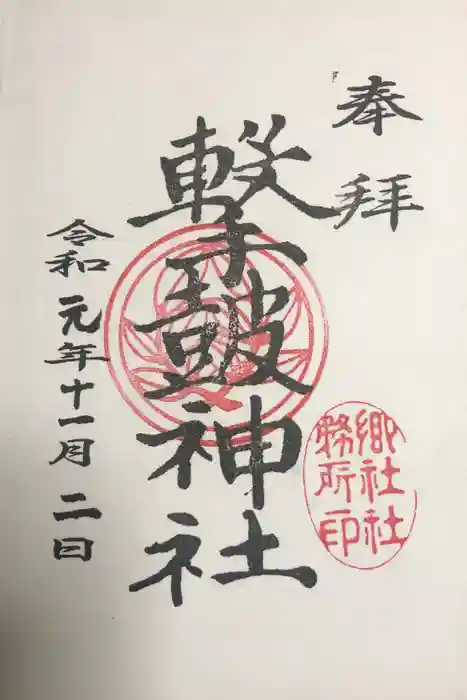 奉拝
撃鼓神社
郷社社
務所印
令和元年十一月二日